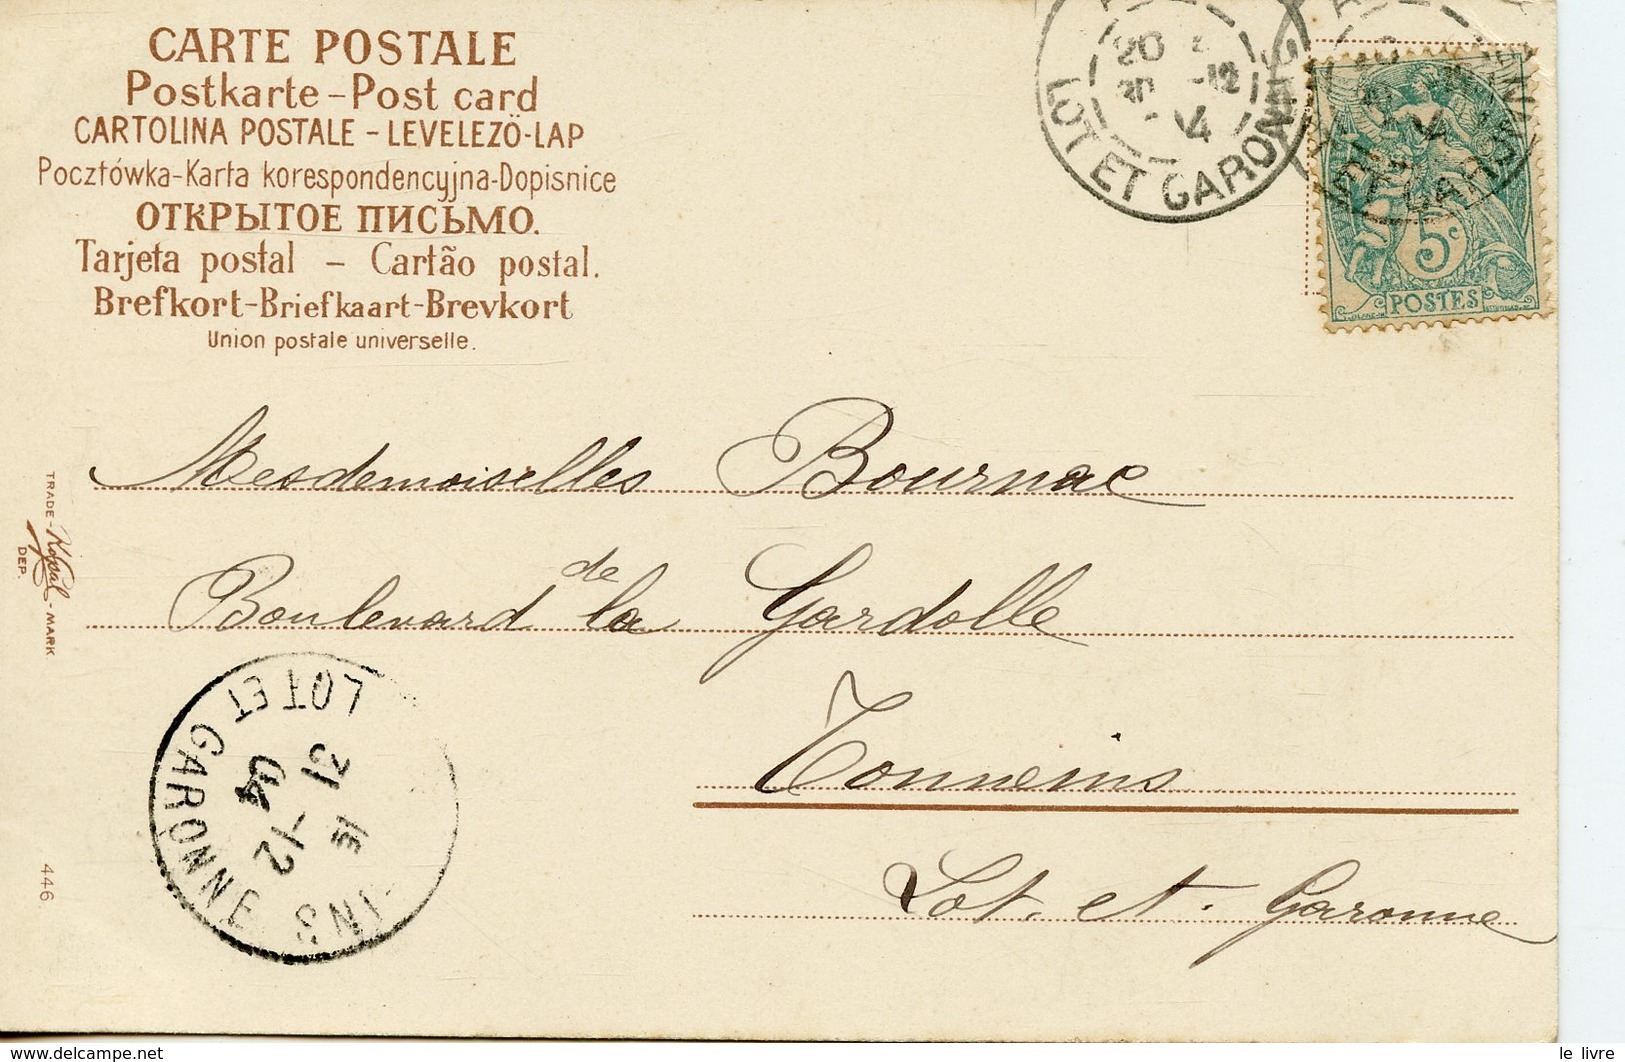 CARTE POSTALE
Postkarte - Post card
CARTOLINA POSTALE - LEVELEZÖ-LAP
Pocztówka-Karta korespondencyjna-Dopisnice
ОТКРЫТОЕ ПИСЬМО.
Tarjeta postal – Cartão postal.
Brefkort-Briefkaart-Brevkort
Union postale universelle.
20
30 -12
LOT ET GARONNE
5c
POSTES
Mesdemoiselles Bournac
Boulevard de la Gardolle
Tonneins
Lot. et. Garonne
TRADE - MARK
DEP.
446
LOT ET GARONNE
1E
31 -12
04
INS
www.delcampe.net
le livre